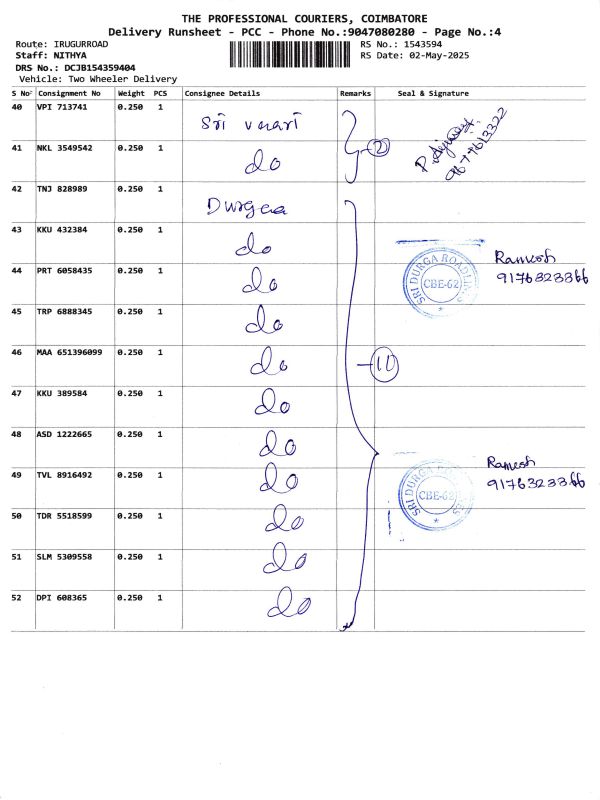 THE PROFESSIONAL COURIERS, COIMBATORE
Delivery Runsheet - PCC - Phone No.:9047080280 - Page No.:4
Route: IRUGURROAD RS No.: 1543594
Staff: NITHYA RS Date: 02-May-2025
DRS No.: DCJB154359404
Vehicle: Two Wheeler Delivery
S No Consignment No Weight PCS Consignee Details Remarks Seal & Signature
40 VPI 713741 0.250 1 Sri
41 NKL 3549542 0.250 1 do 2 9677613322
42 TNJ 828989 0.250 1 Durgaa
43 KKU 432384 0.250 1 do Ramesh
44 PRT 6058435 0.250 1 do SRI DURGA ROADLINES CBE-62 9176323366
45 TRP 6888345 0.250 1 do
46 MAA 651396099 0.250 1 do 11
47 KKU 389584 0.250 1 do
48 ASD 1222665 0.250 1 do Ramesh
49 TVL 8916492 0.250 1 do SRI DURGA ROADLINES CBE-62 9176323366
50 TDR 5518599 0.250 1 do
51 SLM 5309558 0.250 1 do
52 DPI 608365 0.250 1 do